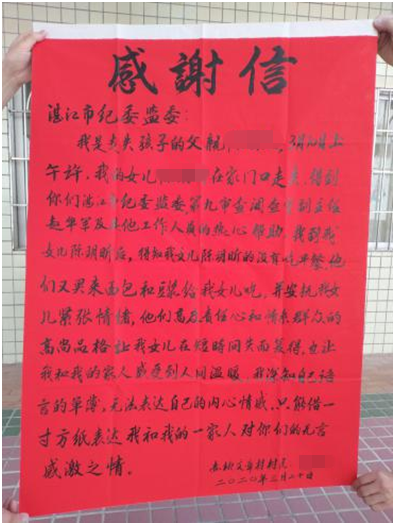 感謝信
湛江市纪委监委:
我是走失孩子的父親 3月20日上
午許,我的女儿 在家门口走失,得到
你们湛江市纪委监委第九审查调查室副主任
赵华军及其他工作人员的热心帮助,找到我
女儿陈玥昕后,得知我女儿陈玥昕的没有吃早餐,他
们又买来面包和豆浆给我女儿吃,并安抚我女
儿紧张情绪,他们高度责任心和情系群众的
高尚品格让我女儿在短时间失而复得,也让
我和我的家人感受到人间温暖,我深知自己语
言的单薄,无法表达自己的内心情感,只能借一
寸方纸表达我和我的一家人对你们的无言
感激之情。
赤坎文章村村民:
二〇二〇年三月二十日